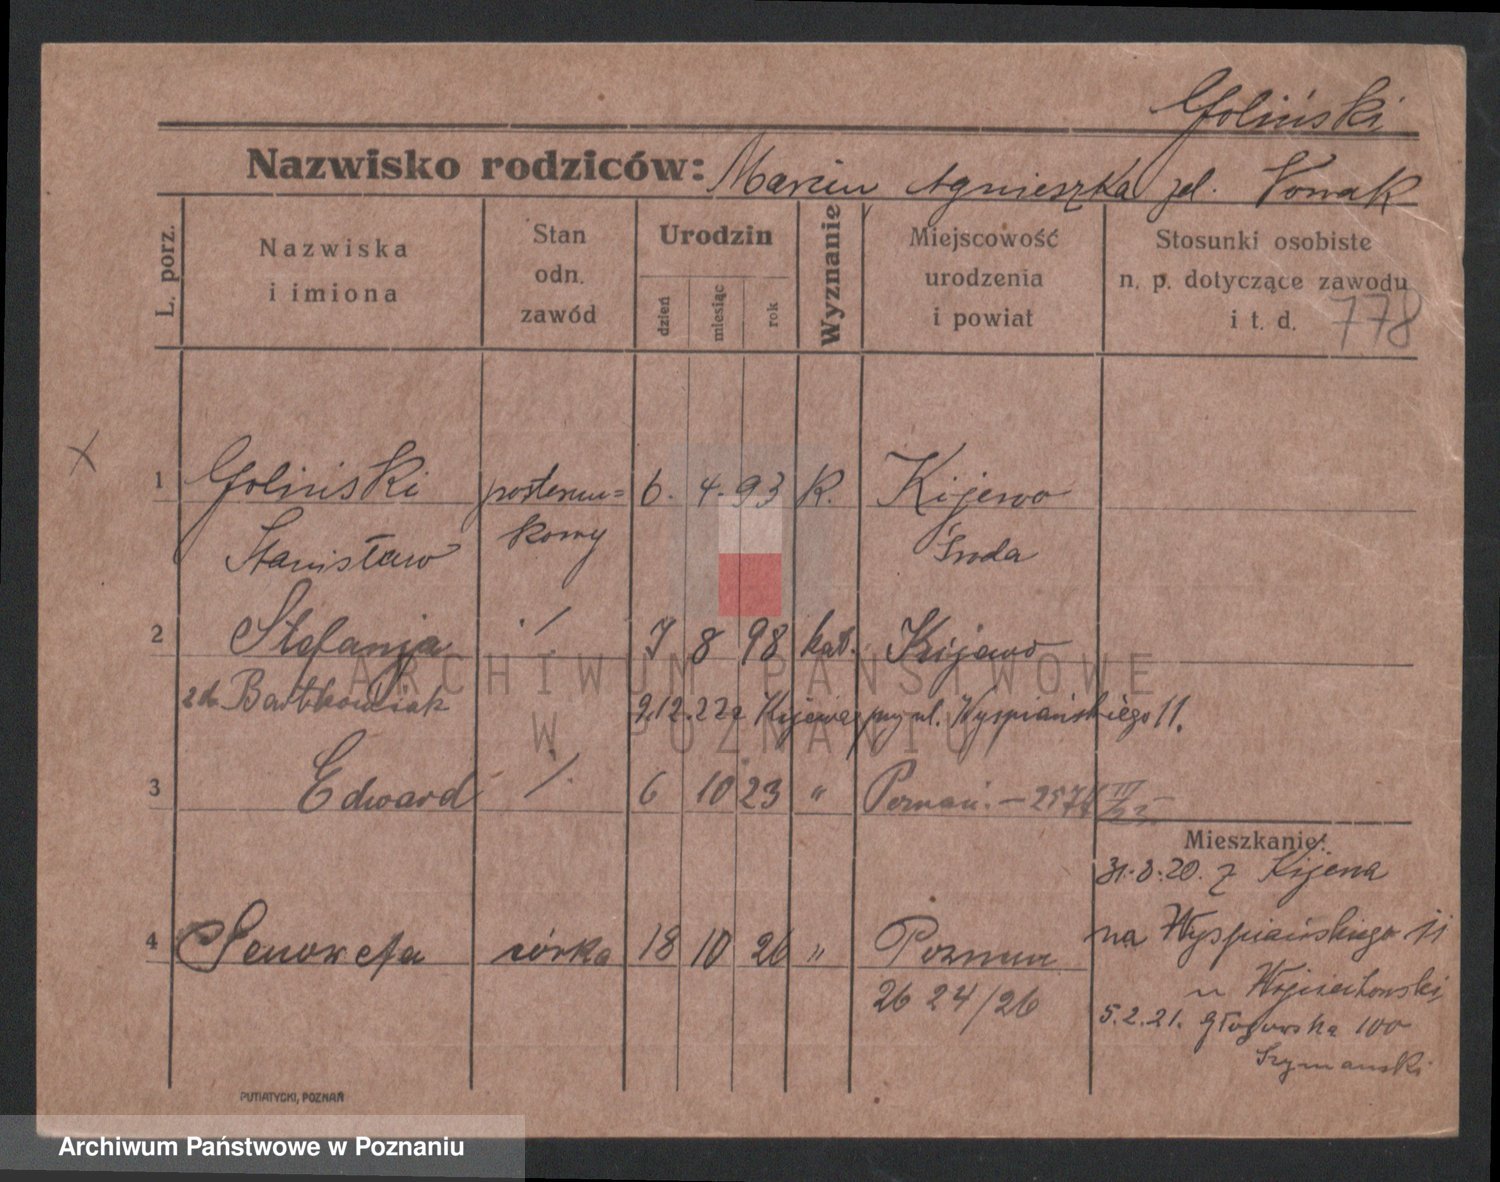 Goliński
Nazwisko rodziców: Marcin Agnieszka zd. Nowak
L. porz.
Nazwiska
i imiona
Stan
odn.
zawód
Urodzin
dzień
miesiąc
rok
Wyznanie
Miejscowość
urodzenia
i powiat
Stosunki osobiste
n. p. dotyczące zawodu
i t. d.
778
x
1 Goliński posterun= 6. 4. 93 R. Kijewo
Stanisław kowy Środa
2 Stefanja ./ 7 8 98 kat. Kijewo
zd. Bartkowiak 9.12.22 z Kijewa przy ul. Wyspiańskiego 11.
3 Edward ./. 6 10 23 " Poznań. –
Mieszkanie:
31.8.20. z Kijewa
na Wyspiańskiego 11
u Wojciechowski
4 Genowefa córka 18 10 26 " Poznań
26 24/26
5.2.21. Głogowska 100
Szymański
PUTIATYCKI, POZNAŃ
ARCHIWUM PAŃSTWOWE
W POZNANIU
Archiwum Państwowe w Poznaniu